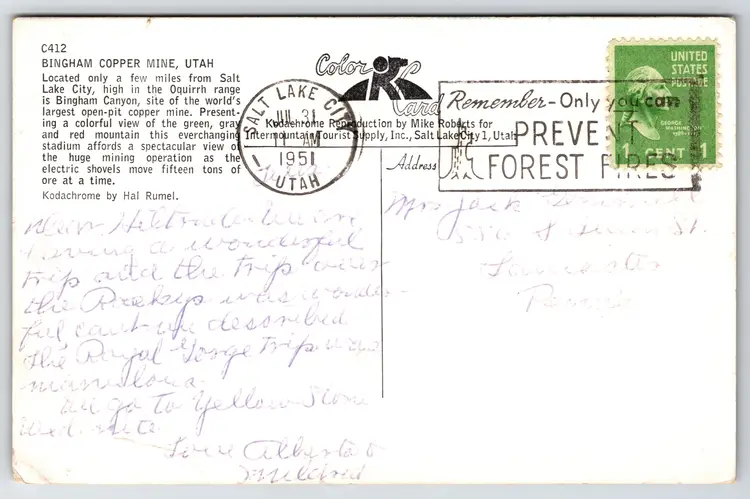 C412
BINGHAM COPPER MINE, UTAH
Located only a few miles from Salt
Lake City, high in the Oquirrh range
is Bingham Canyon, site of the world's
largest open-pit copper mine. Present-
ing a colorful view of the green, gray
and red mountain this everchanging
stadium affords a spectacular view of
the huge mining operation as the
electric shovels move fifteen tons of
ore at a time.
Kodachrome by Hal Rumel.
Color
Card
Kodachrome Reproduction by Mike Roberts for
Intermountain Tourist Supply, Inc., Salt Lake City 1, Utah
SALT LAKE CITY
JUL 31
AM
1951
UTAH
Remember-Only you can
PREVENT
FOREST FIRES
UNITED
STATES
POSTAGE
GEORGE
WASHINGTON
1 CENT 1
Address
Mrs Jack
St.
Lancaster
Penna
we are
having a wonderful
trip and the trip over
the Rockys was wonder-
ful can't be described
the Royal Gorge trip was
marvelous
go to Yellow Stone
Wed.
Love Alberta &
Mildred